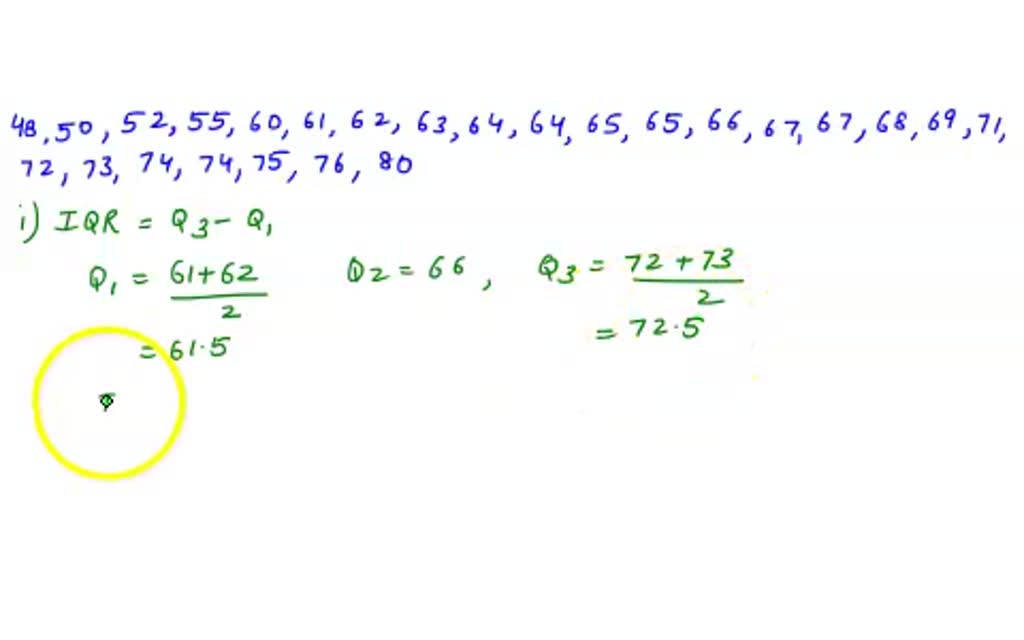 48, 50, 52, 55, 60, 61, 62, 63, 64, 64, 65, 65, 66, 67, 67, 68, 69, 71,
72, 73, 74, 74, 75, 76, 80
i) IQR = Q3 - Q1
Q1 = 61+62/2 Q2 = 66, Q3 = 72+73/2
= 61.5 = 72.5